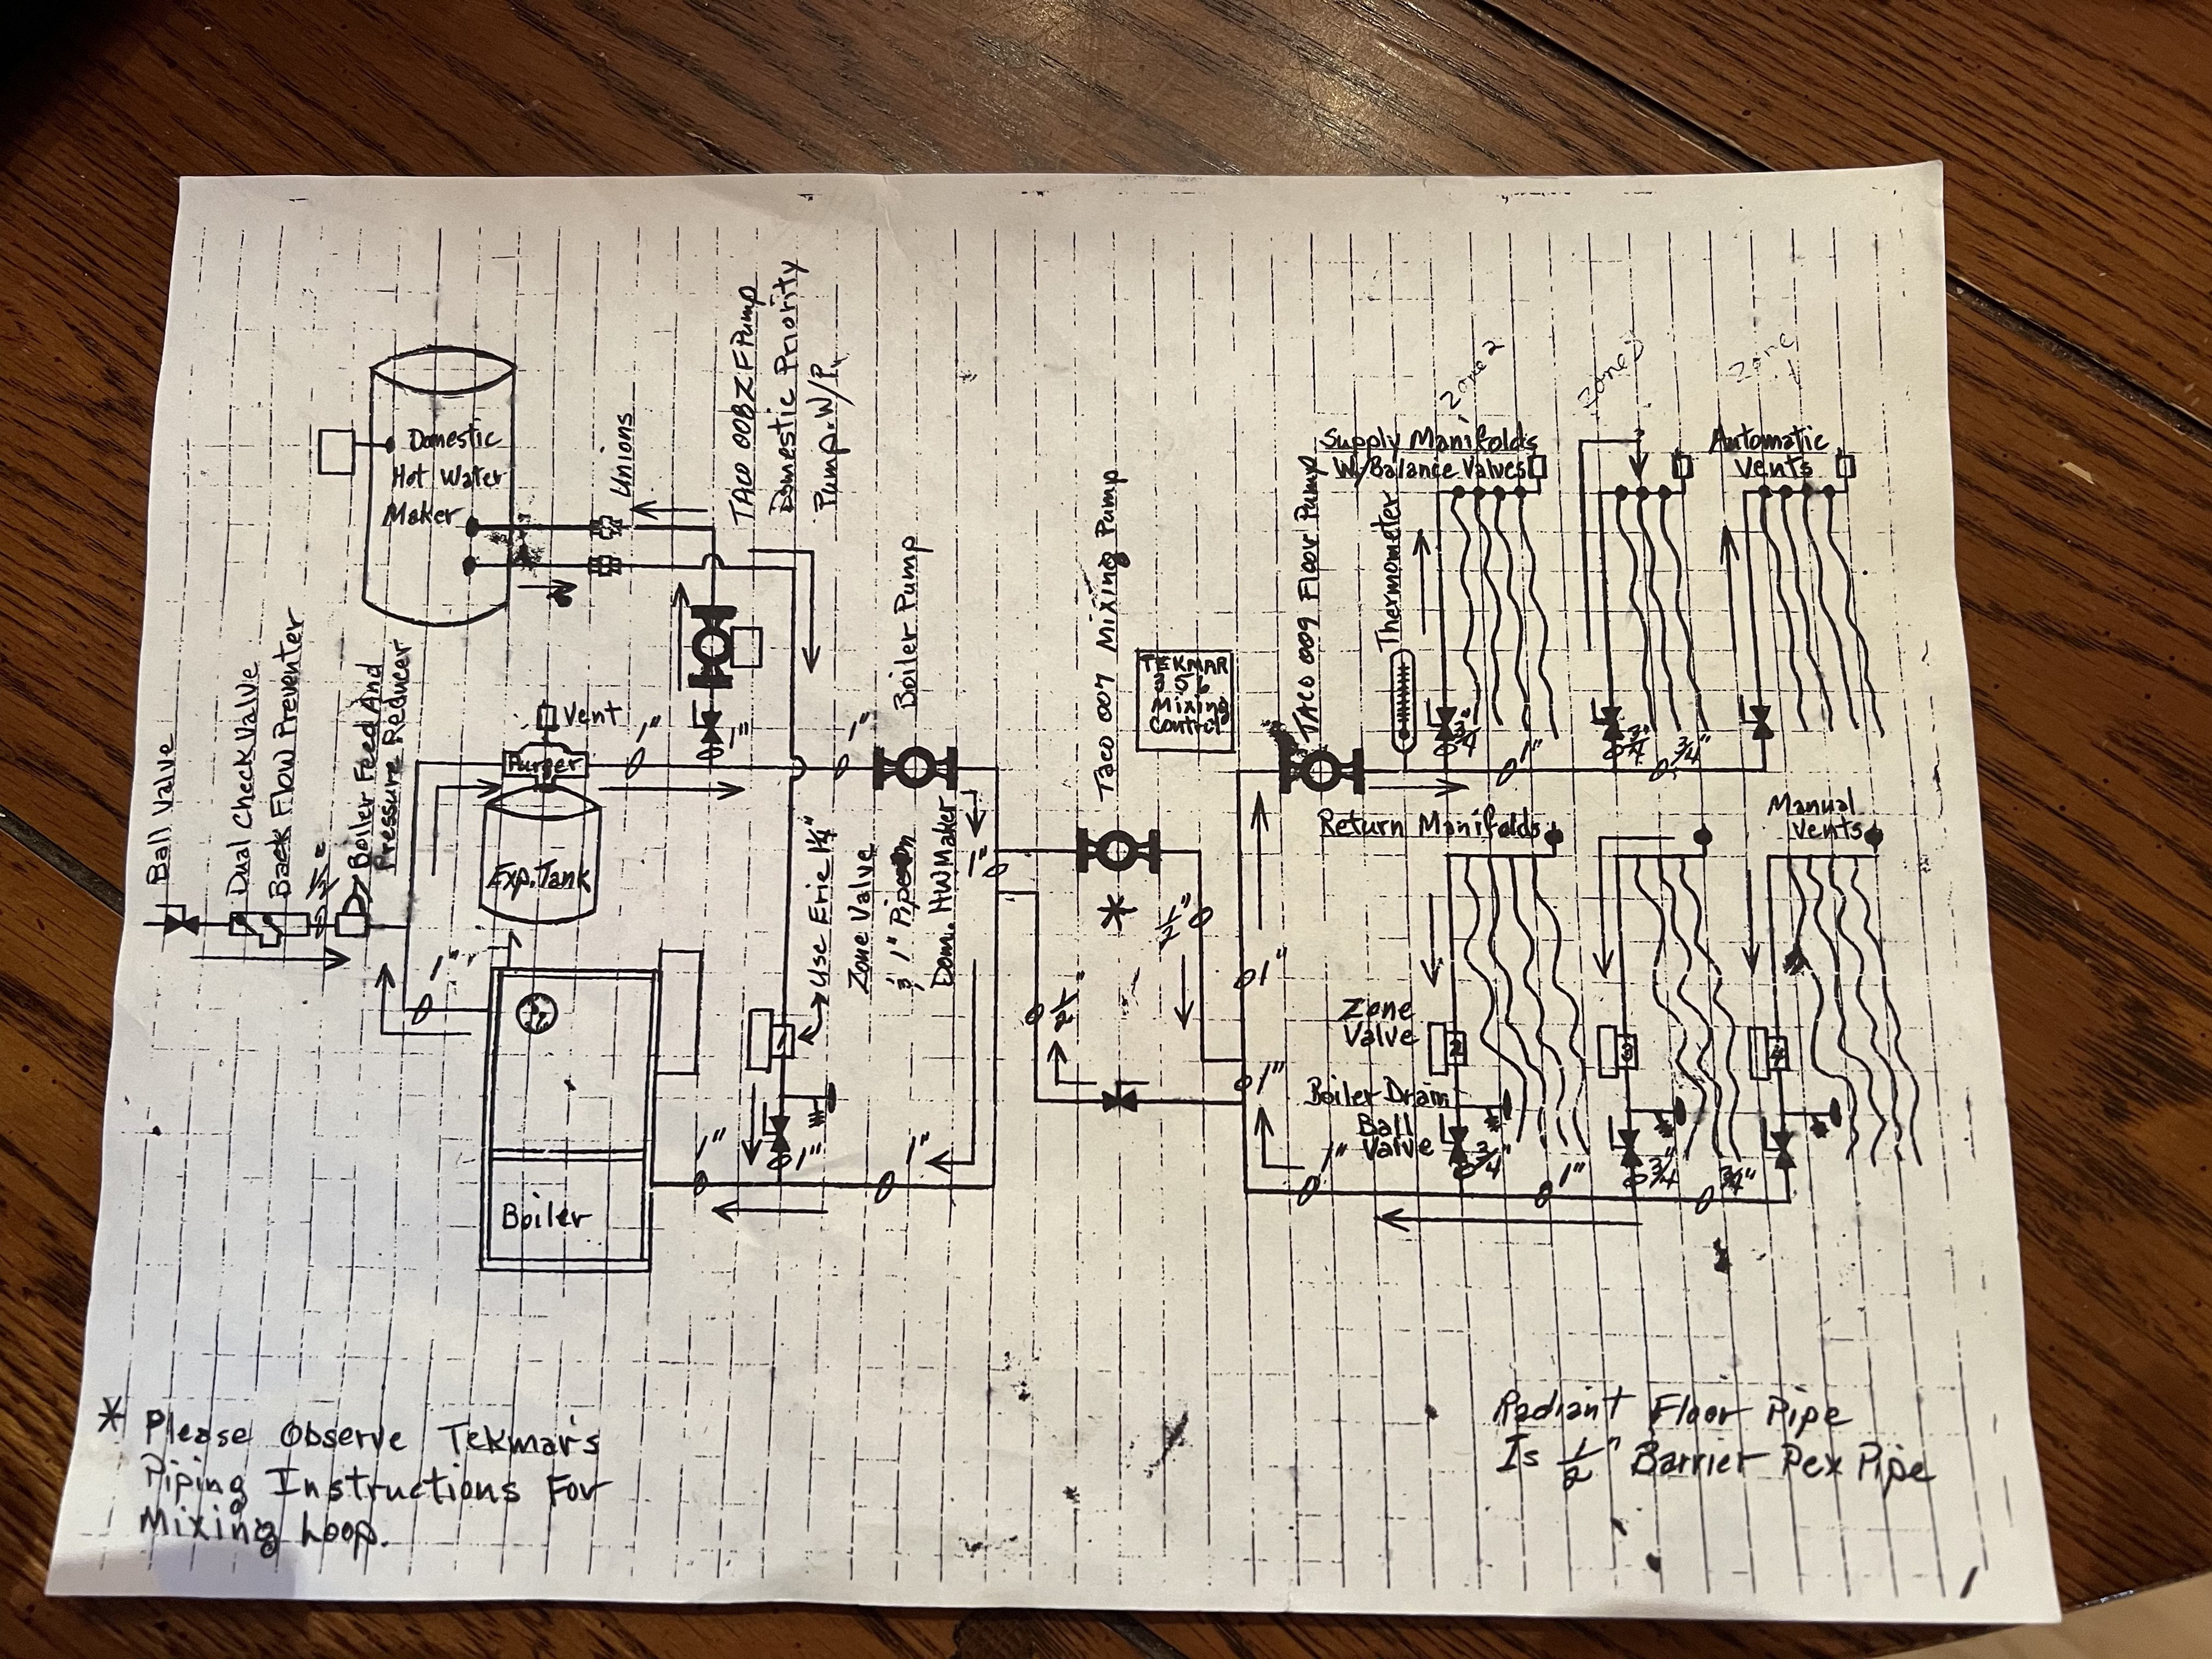 Domestic
Hot Water
Maker
Unions
TACO 00BZF Pump
Domestic Priority
Pump. W/P.
Ball Valve
Dual Check Valve
Back Flow Preventer
1/2"
Boiler Feed And
Pressure Reducer
Vent
Purger
Exp. Tank
1"
1"
1"
1"
Boiler
Boiler Pump
Use Erie 1¼"
Zone Valve
1" Pipe
Dom. HW Maker
1"
1"
1"
1"
Taco 007 Mixing Pump
*
1/2"
1/2"
TEKMAR
356
Mixing
Control
TACO 009 Floor Pump
Thermometer
Supply Manifolds
W/Balance Valves
Zone 2
Zone 3
Zone
Automatic
Vents
3/4"
1"
3/4"
3/4"
Return Manifolds
Manual
Vents
1"
1"
Zone
Valve
2
3
4
Boiler Drain
Ball
Valve
1"
3/4"
1"
3/4"
3/4"
* Please Observe Tekmar's
Piping Instructions For
Mixing Loop.
Radiant Floor Pipe
Is 1/2" Barrier Pex Pipe